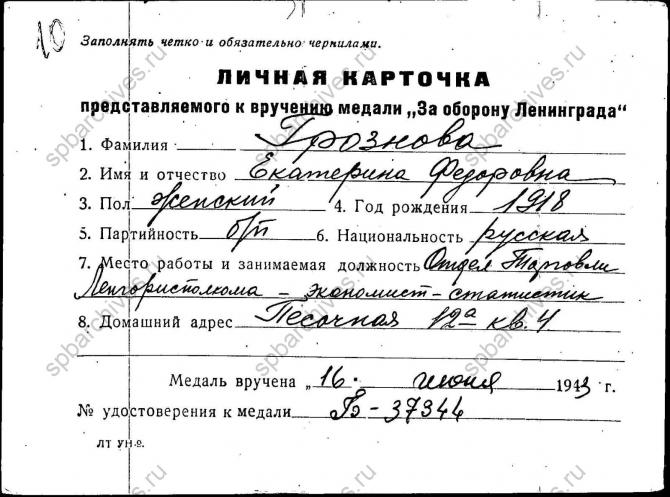 10
Заполнять четко и обязательно чернилами.
ЛИЧНАЯ КАРТОЧКА
представляемого к вручению медали „За оборону Ленинграда“
1. Фамилия Грознова
2. Имя и отчество Екатерина Федоровна
3. Пол женский 4. Год рождения 1918
5. Партийность б/п 6. Национальность русская
7. Место работы и занимаемая должность Отдел Торговли
Ленгорисполкома – экономист-статистик
8. Домашний адрес Песочная 12а кв. 4
Медаль вручена „16. июня 1943 г.
№ удостоверения к медали Б-37344
ЛТ УН-9.
spbarchives.ru
spbarchives.ru
spbarchives.ru
spbarchives.ru
spbarchives.ru
spbarchives.ru